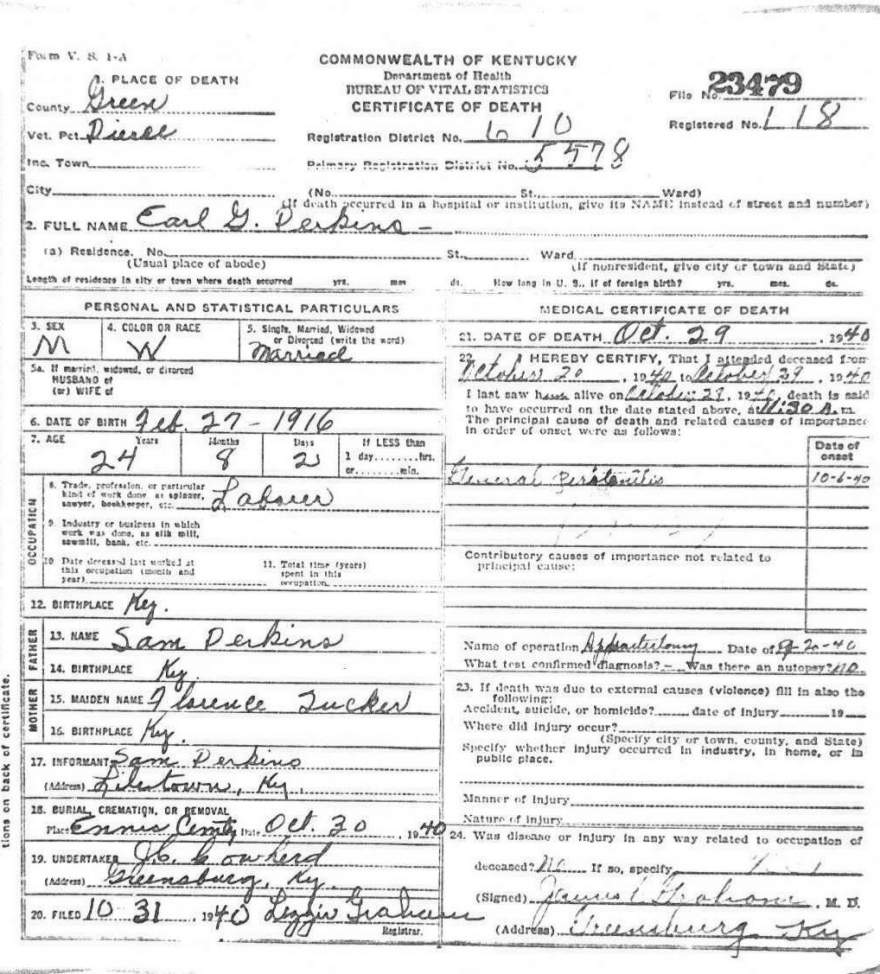 Form V. S. 1-A
COMMONWEALTH OF KENTUCKY
Department of Health
BUREAU OF VITAL STATISTICS
CERTIFICATE OF DEATH
File No. 23479
Registered No. 118
1. PLACE OF DEATH
County Green
Vot. Pct. Pierce
Inc. Town
City
Registration District No. 610
Primary Registration District No. 5578
(No. St. Ward)
(If death occurred in a hospital or institution, give its NAME instead of street and number)
2. FULL NAME Earl G. Perkins -
(a) Residence. No. St., Ward
(Usual place of abode) (If nonresident, give city or town and State)
Length of residence in city or town where death occurred yrs. mos ds. How long in U. S., if of foreign birth? yrs. mos. ds.
PERSONAL AND STATISTICAL PARTICULARS
3. SEX M
4. COLOR OR RACE W
5. Single, Married, Widowed
or Divorced (write the word)
Married
5a. If married, widowed, or divorced
HUSBAND of
(or) WIFE of
6. DATE OF BIRTH Feb. 27 - 1916
7. AGE Years Months Days If LESS than
24 8 2 1 day........hrs.
or........min.
OCCUPATION
8. Trade, profession, or particular
kind of work done, as spinner,
sawyer, bookkeeper, etc. Laborer
9. Industry or business in which
work was done, as silk mill,
sawmill, bank, etc.
10 Date deceased last worked at
this occupation (month and
year)
11. Total time (years)
spent in this
occupation
12. BIRTHPLACE Ky.
FATHER
13. NAME Sam Perkins
14. BIRTHPLACE Ky.
MOTHER
15. MAIDEN NAME Florence Tucker
16. BIRTHPLACE Ky.
17. INFORMANT Sam Perkins
(Address) Liletown, Ky.
18. BURIAL, CREMATION, OR REMOVAL
Place Ennis Date Oct. 30, 1940
19. UNDERTAKER J.C. Cowherd
(Address) Greensburg, Ky.
20. FILED 10 31, 1940 Lizzie Graham
Registrar.
MEDICAL CERTIFICATE OF DEATH
21. DATE OF DEATH Oct. 29, 1940
22. I HEREBY CERTIFY, That I attended deceased from
October 20, 1940 to October 29, 1940
I last saw alive on October 29, 1940, death is said
to have occurred on the date stated above, at 11:30 A. m.
The principal cause of death and related causes of importance
in order of onset were as follows:
Date of
onset
General peritonitis 10-6-40
Contributory causes of importance not related to
principal cause:
Name of operation Date of 9-20-40
What test confirmed diagnosis? - Was there an autopsy? no.
23. If death was due to external causes (violence) fill in also the
following:
Accident, suicide, or homicide? date of injury 19
Where did injury occur?
(Specify city or town, county, and State)
Specify whether injury occurred in industry, in home, or in
public place.
Manner of injury
Nature of injury
24. Was disease or injury in any way related to occupation of
deceased? No If so, specify
(Signed) James Graham, M. D.
(Address) Greensburg Ky
tions on back of certificate.